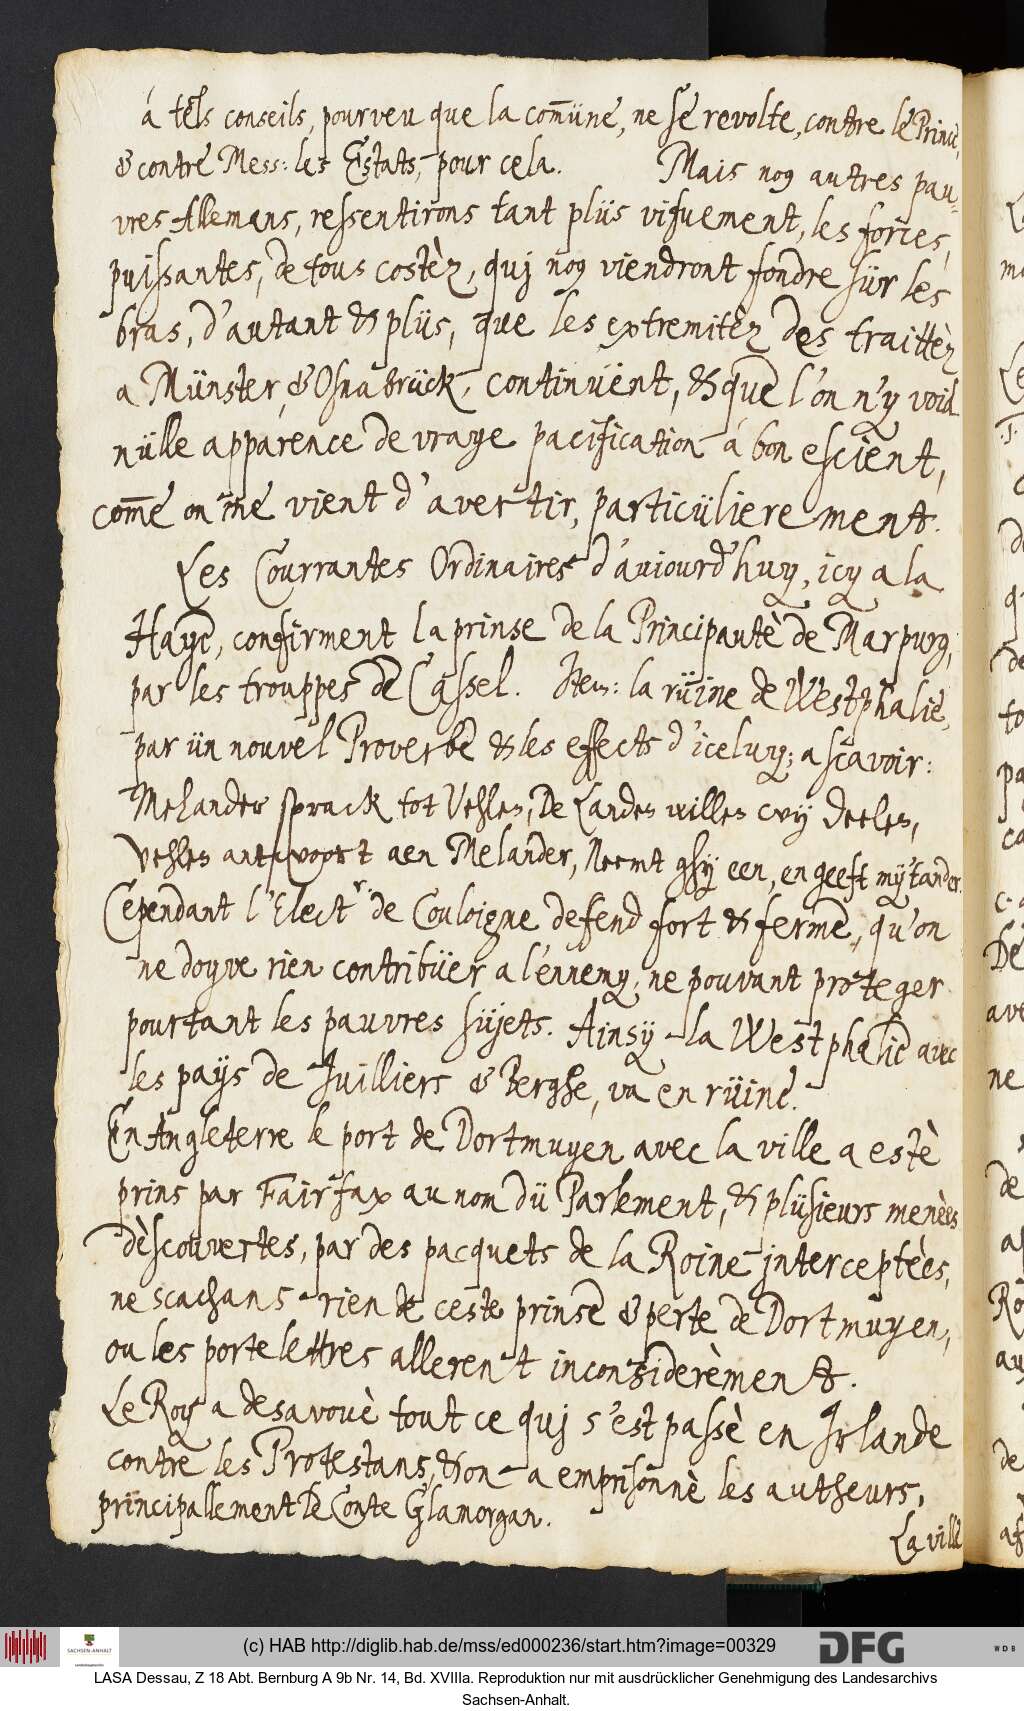 á tels conseils, pourveu que la com̅üne, ne se revolte, contre le Prince,
& contre Mess: les Estats, pour cela. Mais nog autres pau-
vres Allemans, ressentirons tant plüs vifuement, les forces,
puissantes, de tous costèz, quj nog viendront fondre sür les
bras, d'autant & plüs, que les extremitèz des traittèz
a Münster, & Osnabrück, continüent, & que l'on n'y void
nülle apparence de vraye pacification á bon escient,
com̅e on me vient d'avertir, particülierement.
Les Courrantes Ordinaires d'aujourd'huy, icy a la
Haye, confirment la prinse de la Principautè de Marpurg,
par les trouppes de Cassel. Item: la rüine de Westphalie,
par ün nouvel Proverbe & les effects d'iceluy; a scavoir:
Melander sprack tot Vehlen, De Landes willen wij deelen,
Vehlen antwoort aen Melander, Neemt ghij een, en geeft mÿ t'ander.
Cependant l'Elect.r de Couloigne defend fort & ferme, qu'on
ne doyve rien contribüer a l'ennemy, ne pouvant proteger
pourtant les pauvres süjets. Ainsÿ la Westphalie avec
les paÿs de Juilliers & Berghe, va en rüine.
En Angleterre le port de Dortmuyen avec la ville a estè
prins par Fairfax au nom dü Parlement, & plüsieurs menèes
dèscouvertes, par des pacquets de la Roine interceptèes,
ne scachans rien de ceste prinse & perte de Dortmuyen,
ou les porte lettres allerent inconsiderèment.
Le Roy a desavouè tout ce quj s'est passè en Irlande
contre les Protestans, & on a emprisonnè les autheurs,
principallement le Conte Glamorgan.
La ville
(c) HAB http://diglib.hab.de/mss/ed000236/start.htm?image=00329
SACHSEN-ANHALT
DFG
WDB
LASA Dessau, Z 18 Abt. Bernburg A 9b Nr. 14, Bd. XVIIIa. Reproduktion nur mit ausdrücklicher Genehmigung des Landesarchivs
Sachsen-Anhalt.